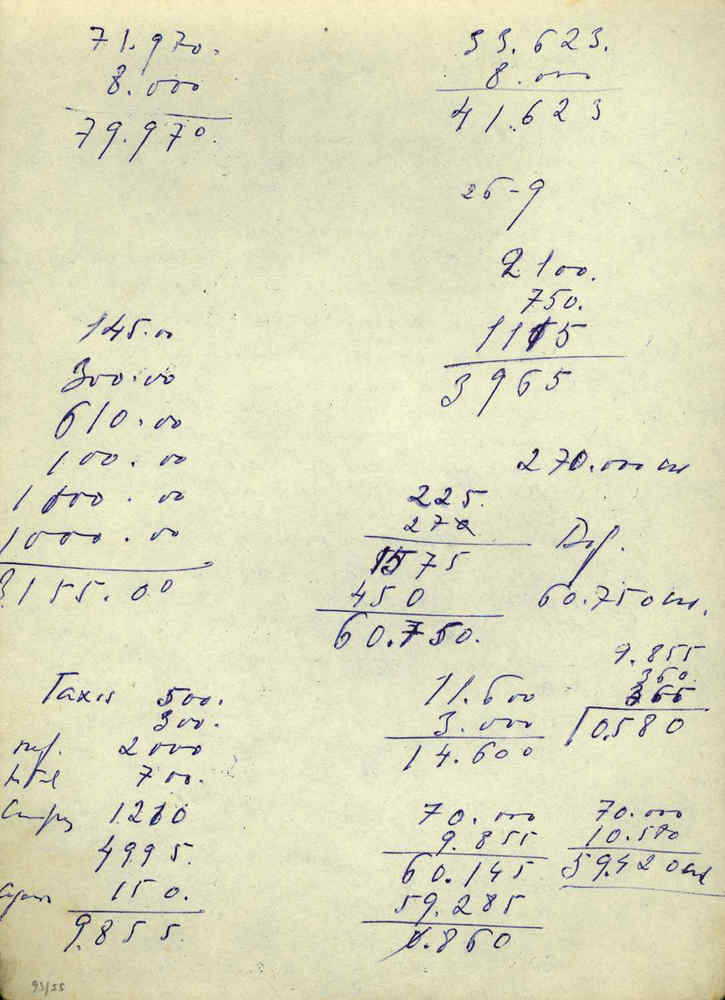 71.970.
8.000
79.970.
33.623.
8.000
41.623
26-9
2100.
750.
1115
3965
145.00
300.00
610.00
100.00
1000.00
1000.00
3.155.00
270.000
225.
270
1575
450
60.750.
60.750
9.855
360.
365
10.580
11.600
3.000
14.600
Taxis 500.
300.
2000
700.
1210
4995.
150.
9.855.
70.000
9.855
60.145
59.285
0.860
70.000
10.580
59.420
93/55